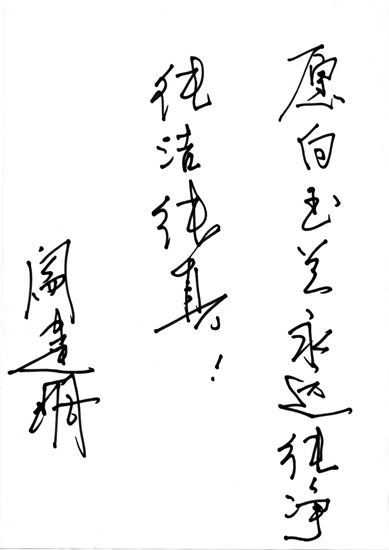 愿白玉兰永远纯净
纯洁纯真！
阎建钢